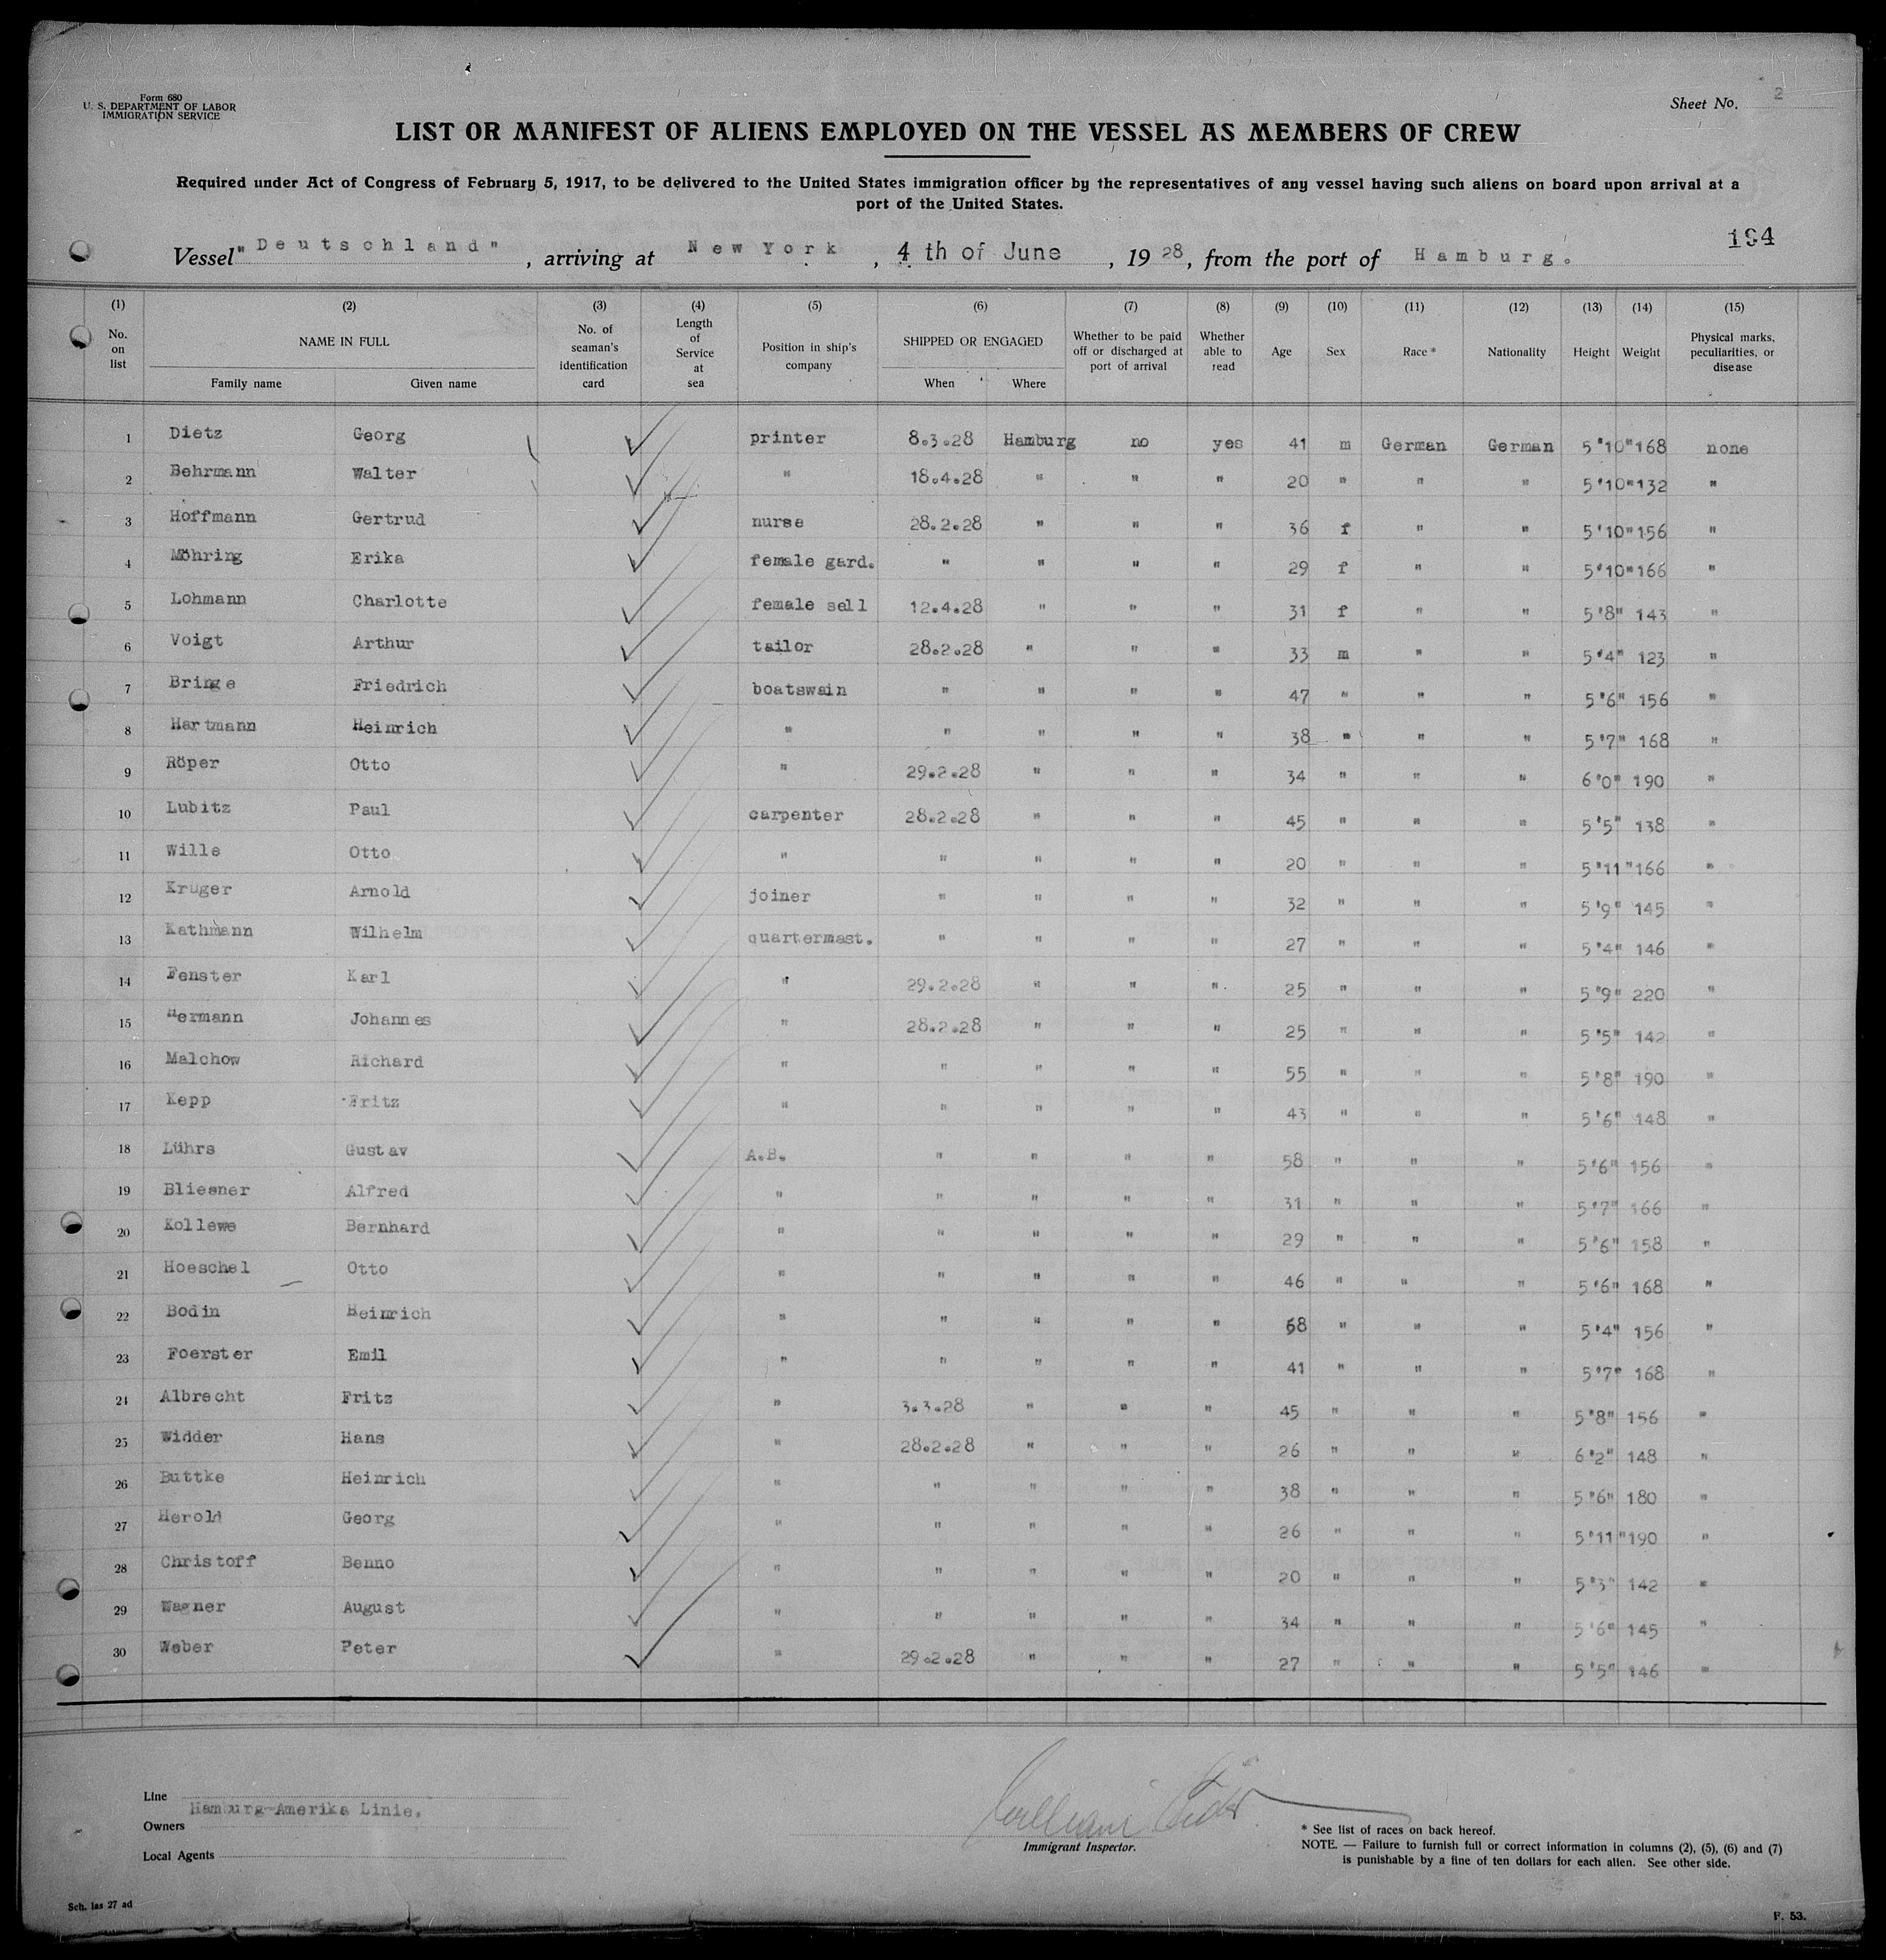 Form 680
U. S. DEPARTMENT OF LABOR
IMMIGRATION SERVICE
Sheet No. 2
LIST OR MANIFEST OF ALIENS EMPLOYED ON THE VESSEL AS MEMBERS OF CREW
Required under Act of Congress of February 5, 1917, to be delivered to the United States immigration officer by the representatives of any vessel having such aliens on board upon arrival at a
port of the United States.
194
Vessel "Deutschland", arriving at New York, 4 th of June, 1928, from the port of Hamburg.
(1) (2) (3) (4) (5) (6) (7) (8) (9) (10) (11) (12) (13) (14) (15)
No. on list NAME IN FULL Family name Given name No. of seaman's identification card Length of Service at sea Position in ship's company SHIPPED OR ENGAGED When Where Whether to be paid off or discharged at port of arrival Whether able to read Age Sex Race * Nationality Height Weight Physical marks, peculiarities, or disease
1 Dietz Georg printer 8.3.28 Hamburg no yes 41 m German German 5'10" 168 none
2 Behrmann Walter " 18.4.28 " " " 20 " " " 5'10" 132 "
3 Hoffmann Gertrud nurse 28.2.28 " " " 36 f " " 5'10" 156 "
4 Möhring Erika female gard. " " " " 29 f " " 5'10" 166 "
5 Lohmann Charlotte female sell 12.4.28 " " " 31 f " " 5'8" 143 "
6 Voigt Arthur tailor 28.2.28 " " " 33 m " " 5'4" 123 "
7 Bringe Friedrich boatswain " " " " 47 " " " 5'6" 156 "
8 Hartmann Heinrich " " " " " 38 " " " 5'7" 168 "
9 Röper Otto " 29.2.28 " " " 34 " " " 6'0" 190 "
10 Lubitz Paul carpenter 28.2.28 " " " 45 " " " 5'5" 138 "
11 Wille Otto " " " " " 20 " " " 5'11" 166 "
12 Kruger Arnold joiner " " " " 32 " " " 5'9" 145 "
13 Kathmann Wilhelm quartermast. " " " " 27 " " " 5'4" 146 "
14 Fenster Karl " 29.2.28 " " " 25 " " " 5'9" 220 "
15 Hermann Johannes " 28.2.28 " " " 25 " " " 5'5" 142 "
16 Malchow Richard " " " " " 55 " " " 5'8" 190 "
17 Kepp Fritz " " " " " 43 " " " 5'6" 148 "
18 Lührs Gustav A.B. " " " " 58 " " " 5'6" 156 "
19 Bliesner Alfred " " " " " 31 " " " 5'7" 166 "
20 Kollewe Bernhard " " " " " 29 " " " 5'6" 158 "
21 Hoeschel Otto " " " " " 46 " " " 5'6" 168 "
22 Bodin Heinrich " " " " " 68 " " " 5'4" 156 "
23 Foerster Emil " " " " " 41 " " " 5'7" 168 "
24 Albrecht Fritz " 3.3.28 " " " 45 " " " 5'8" 156 "
25 Widder Hans " 28.2.28 " " " 26 " " " 6'2" 148 "
26 Buttke Heinrich " " " " " 38 " " " 5'6" 180 "
27 Herold Georg " " " " " 26 " " " 5'11" 190 "
28 Christoff Benno " " " " " 20 " " " 5'3" 142 "
29 Wagner August " " " " " 34 " " " 5'6" 145 "
30 Weber Peter " 29.2.28 " " " 27 " " " 5'5" 146 "
Line
Hamburg-Amerika Linie.
Owners
Local Agents
William
Immigrant Inspector.
* See list of races on back hereof.
NOTE. — Failure to furnish full or correct information in columns (2), (5), (6) and (7)
is punishable by a fine of ten dollars for each alien. See other side.
Sch. las 27 ad
F. 53.